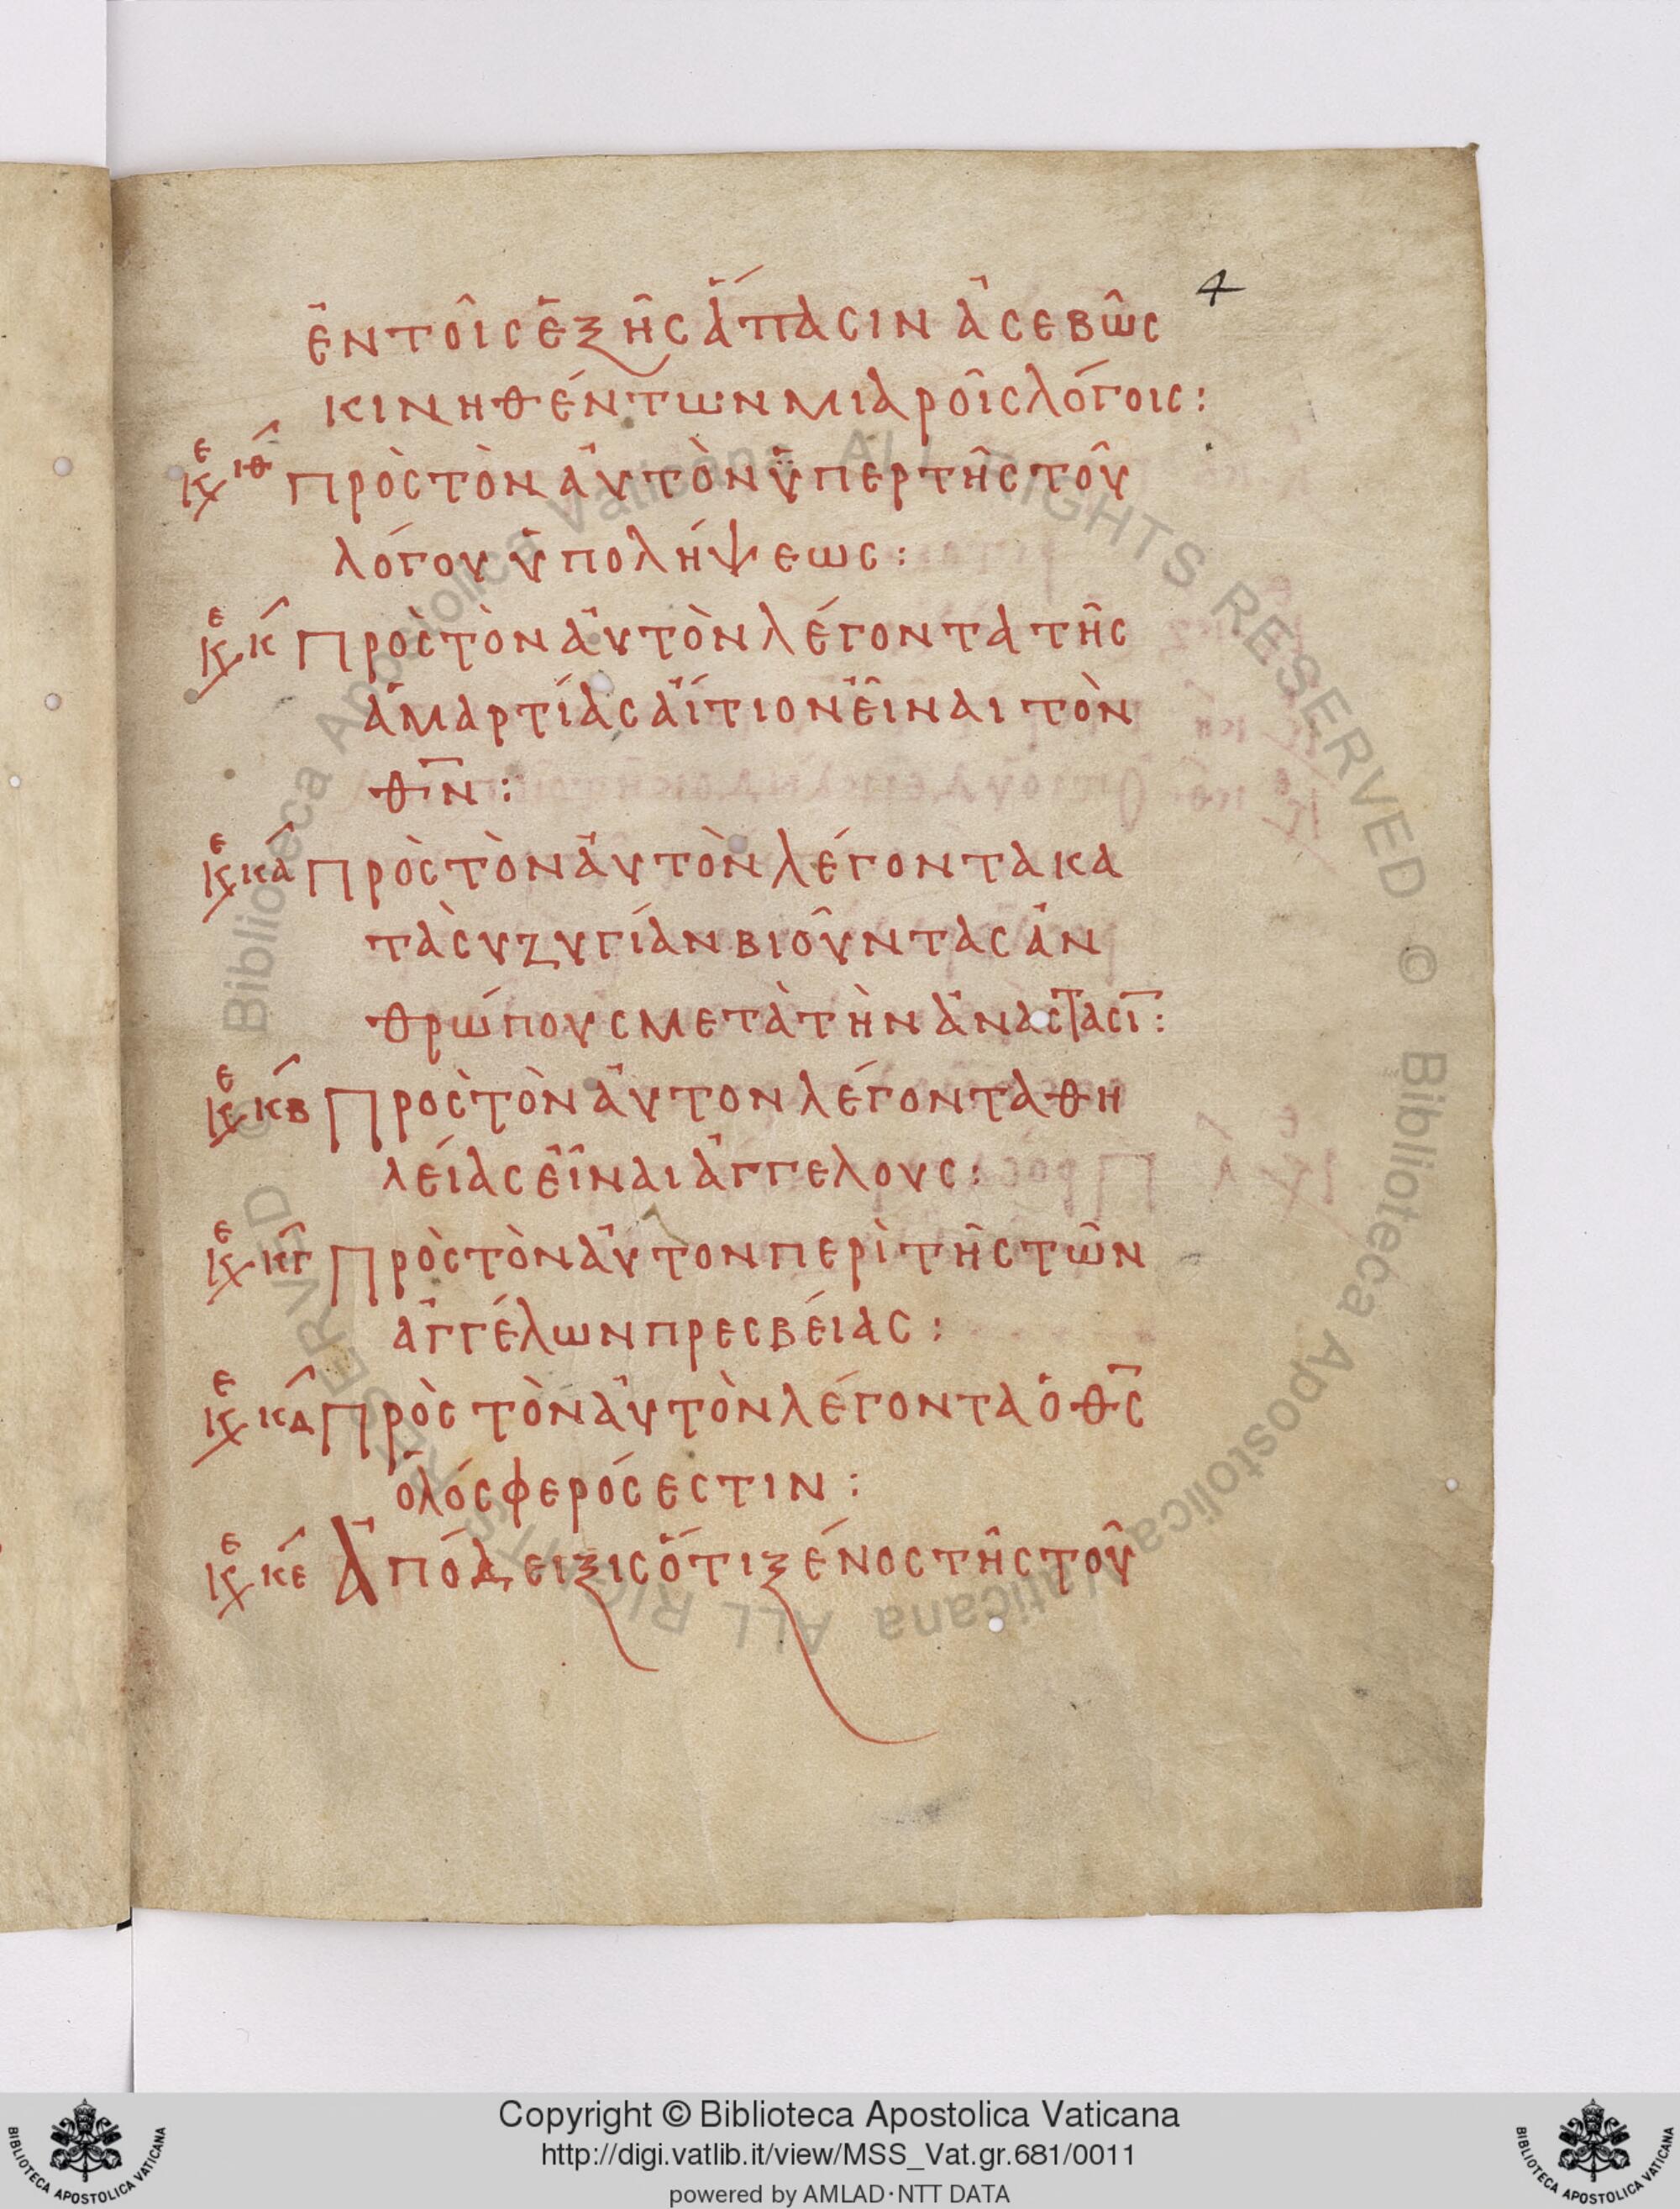 4
ἐν τοῖς ἑξῆς ἅπασιν ἀσεβῶς
κινηθέντων μιαροῖς λόγοις:
Κεφ ιθ Πρὸς τὸν ἀυτὸν ὑπερ τῆς τοῦ
λόγου ὑπολήψεως:
Κεφ κ Προὲς τὸν ἀυτὸν λέγοντα τῆς
ἁμαρτίας αἴτιον εἶναι τὸν
θν:
Κεφ κα Πρὸς τὸν ἀυτὸν λέγοντα κα
τὰ συζυγίαν βιοῦντας ἀν
θρώπους μετὰ τὴν ἀναστασι:
Κεφ κβ Προὲς τὸν ἀυτον λέγοντα θη
λείας εἶναι ἀγγελους:
Κεφ κγ Πρὸς τὸν ἀυτον περὶ τῆς τῶν
ἀγγέλων πρεσβείας:
Κεφ κδ Πρὸς τὸν ἀυτὸν λέγοντα ὁ θς
ὁλόσφερός εστιν:
Κεφ κε Ἀπόδειξις ὅτι ξένος τῆς τοῦ
Biblioteca Apostolica Vaticana ALL RIGHTS RESERVED ©
Biblioteca Apostolica Vaticana ALL RIGHTS RESERVED ©
Copyright © Biblioteca Apostolica Vaticana
http://digi.vatlib.it/view/MSS_Vat.gr.681/0011
powered by AMLAD·NTT DATA
BIBLIOTECA APOSTOLICA VATICANA
BIBLIOTECA APOSTOLICA VATICANA